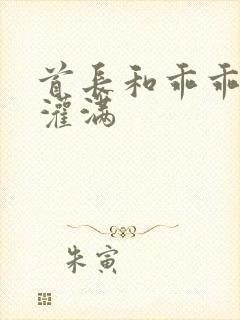 首長和乖乖
灌满
朱寅